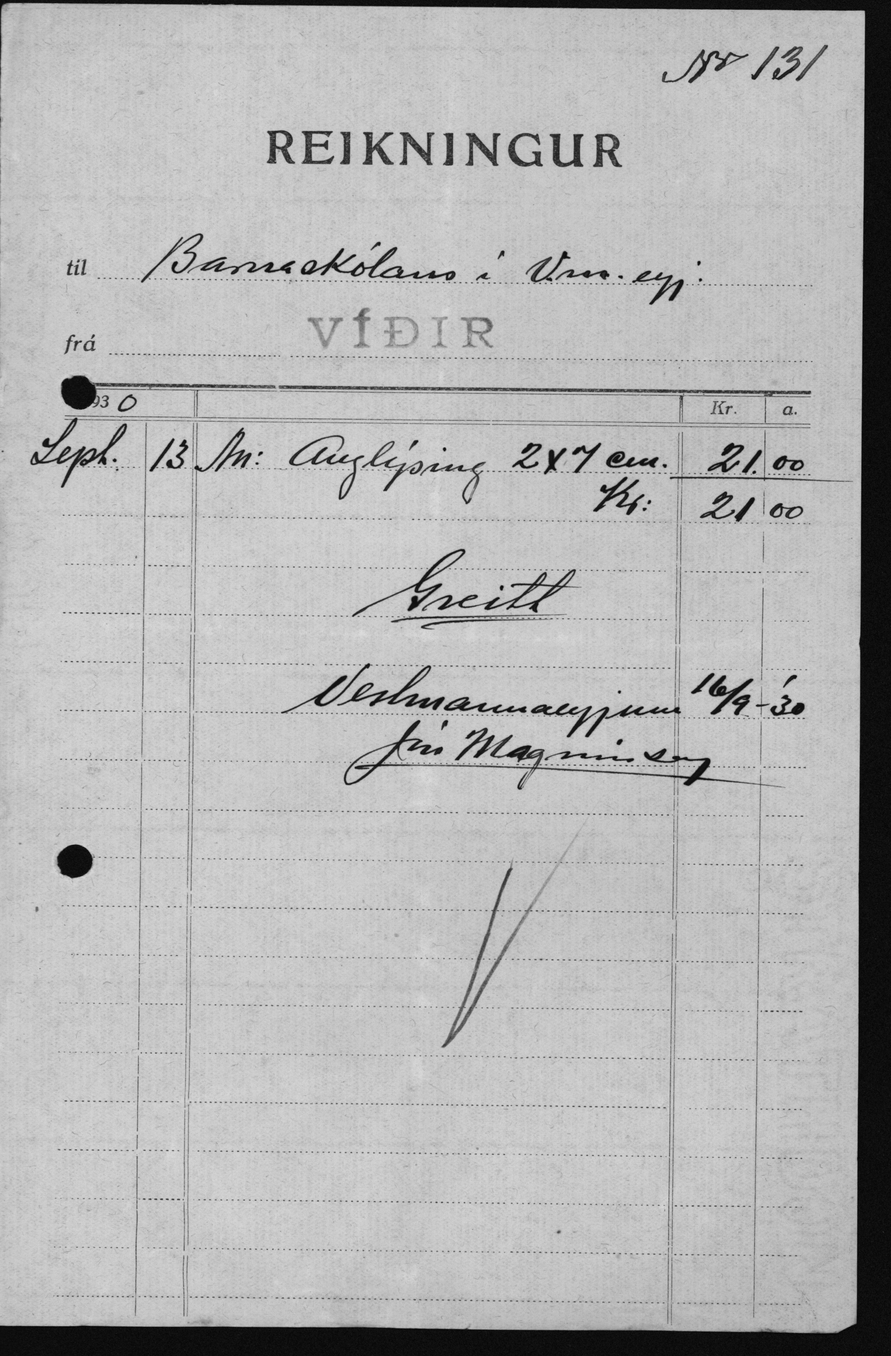 Nr 131
REIKNINGUR
til Barnaskólans í Vm.eyj.
frá VÍÐIR
930 Kr. a.
Sept. 13 An: Auglýsing 2x7 cm. 21.00
Kr: 21 00
Greitt
Vestmannaeyjum 16/9-'30
Jón Magnússon